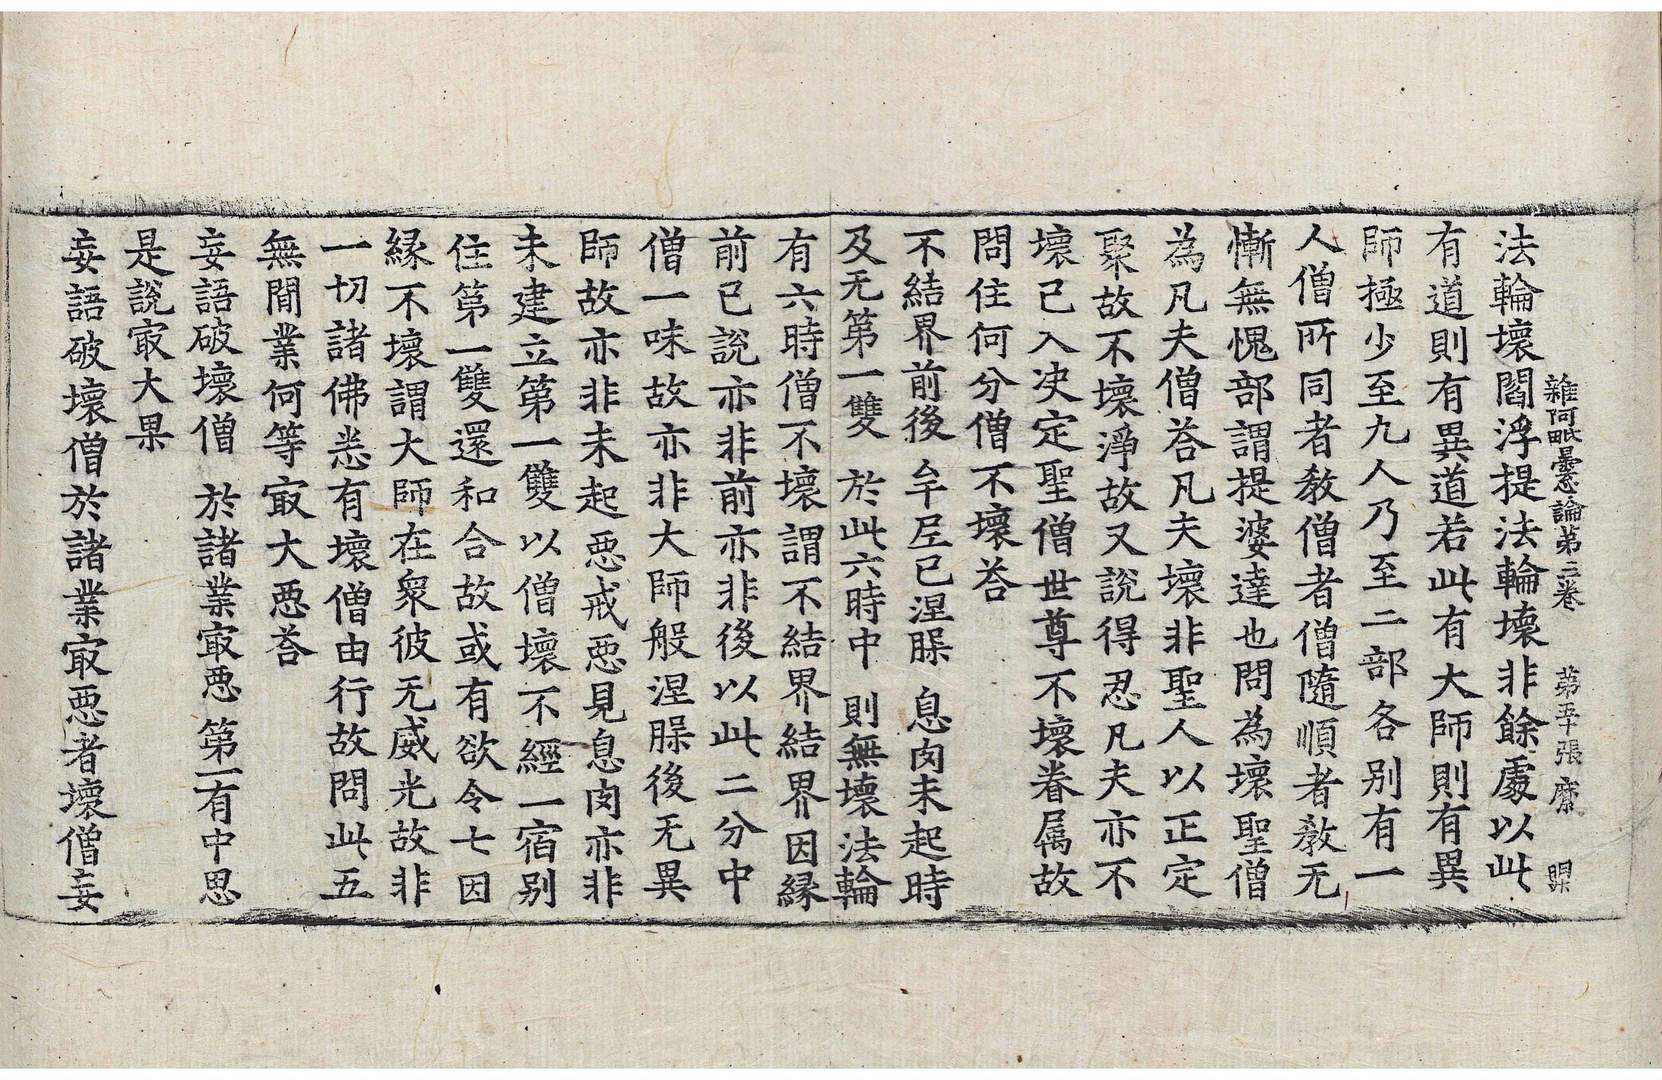 雜阿毗曇心論第三卷　第五十張　縻
法輪壞閻浮提法輪壞非餘處以此
有道則有異道若此有大師則有異
師極少至九人乃至二部各别有一
人僧所同者教僧者僧隨順者教无
慚無愧部謂提婆達也問為壞聖僧
為凡夫僧荅凡夫壞非聖人以正定
聚故不壞淨故又說得忍凡夫亦不
壞已入决定聖僧世尊不壞眷属故
問住何分僧不壞荅
不結界前後　牟𡰱已涅槃　息肉未起時
及无第一雙　於此六時中　則無壞法輪
有六時僧不壞謂不結界結界因縁
前已說亦非前亦非後以此二分中
僧一味故亦非大師般涅槃後无異
師故亦非未起惡戒惡見息肉亦非
未建立第一雙以僧壞不經一宿别
住第一雙還和合故或有欲令七因
縁不壞謂大師在衆彼无威光故非
一切諸佛悉有壞僧由行故問此五
無間業何等㝡大惡荅
妄語破壞僧　於諸業㝡惡　第一有中思
是說㝡大果
妄語破壞僧於諸業㝡惡者壞僧妄